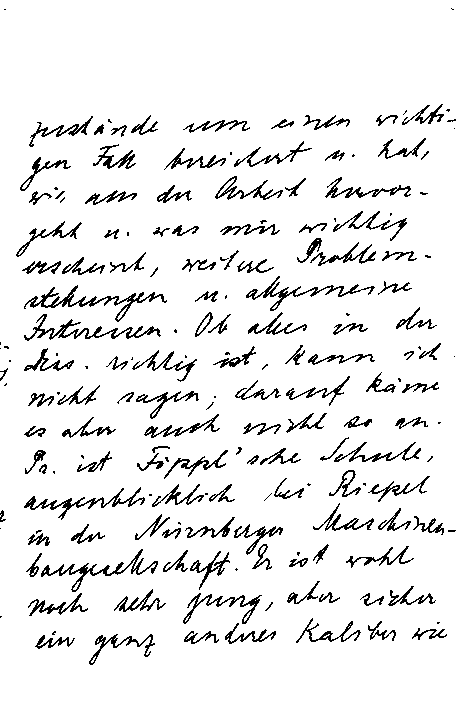 zustände um einen wichti-
gen Fall bereichert u. hat,
wie aus der Arbeit hervor-
geht u. was mir wichtig
erscheint, weitere Problem-
stellungen u. allgemeine
Interessen. Ob alles in der
Diss. richtig ist, kann ich
nicht sagen; darauf käme
es aber auch nicht so an.
Pr. ist Föppl'sche Schule,
augenblicklich bei Rieppel
in der Nürnberger Maschinen-
baugesellschaft. Er ist wohl
noch sehr jung, aber sicher
ein ganz anderes Kaliber wie